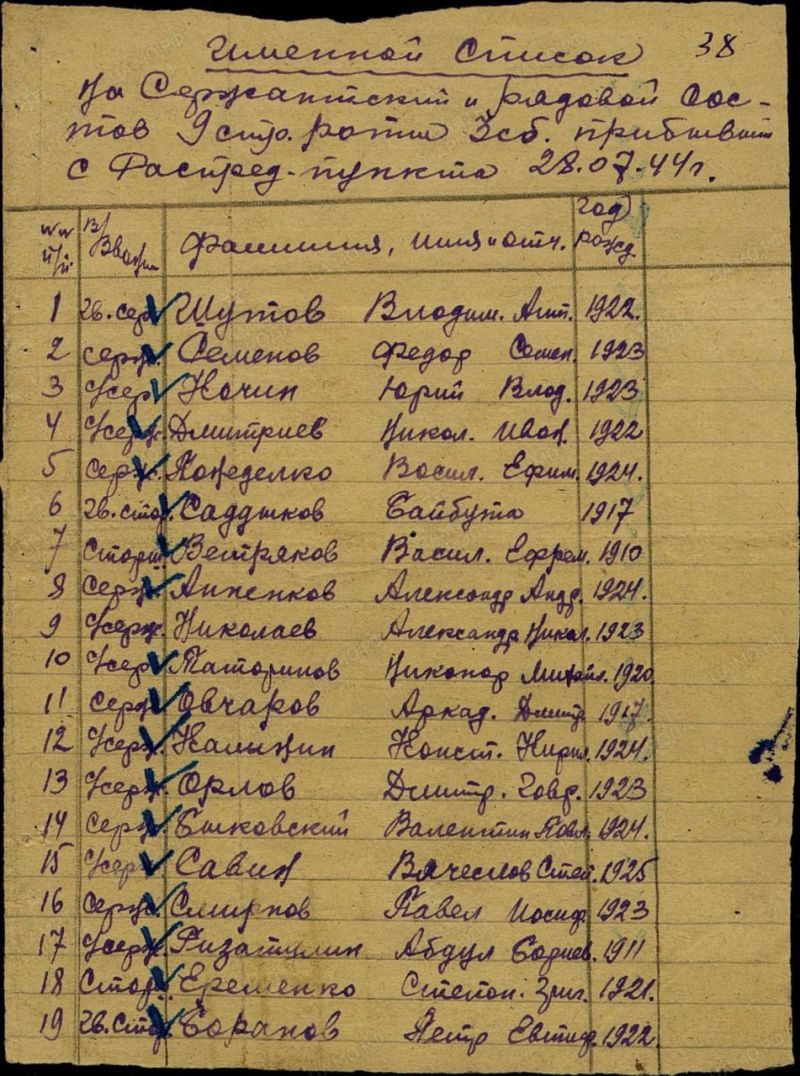 38
Именной Список
на Сержантский и рядовой Сос-
тав 9 стр. роты 3сб. прибывш
с Распред. пункта 28.07.44г.
№№ п/п В/Зван Фамилия, имя и отч. Год рожд
1 Гв. сер Шутов Владим. Ант. 1922.
2 серж. Семенов Федор Семен. 1923
3 Мсер Кочин Юрий Влад. 1923
4 Мсерж. Дмитриев Никол. Иван. 1922
5 серж. Понеделко Васил. Ефим. 1924.
6 Гв. стар. Саддыков Байбута 1917
7 Старш. Ветряков Васил. Ефрем. 1910
8 Серж. Анненков Александр Андр. 1924.
9 Мсерж. Николаев Александр Никол. 1923
10 Мсер Татаринов Никонор Михайл. 1920
11 серж Овчаров Аркад. Дмитр. 1917.
12 Мсерж. Калицин Конст. Кирил. 1924.
13 Мсерж. Орлов Дмитр. Гавр. 1923
14 серж. Быковский Валентин Павл. 1924.
15 Мсер Савин Вячеслов Степ. 1925
16 серж. Смирнов Павел Иосиф. 1923
17 Мсерж Ризатулин Абдул 1911
18 Стар. Еременко Степан. Григ. 1921.
19 Гв. Стар. Баранов Петр Евтиф. 1922.